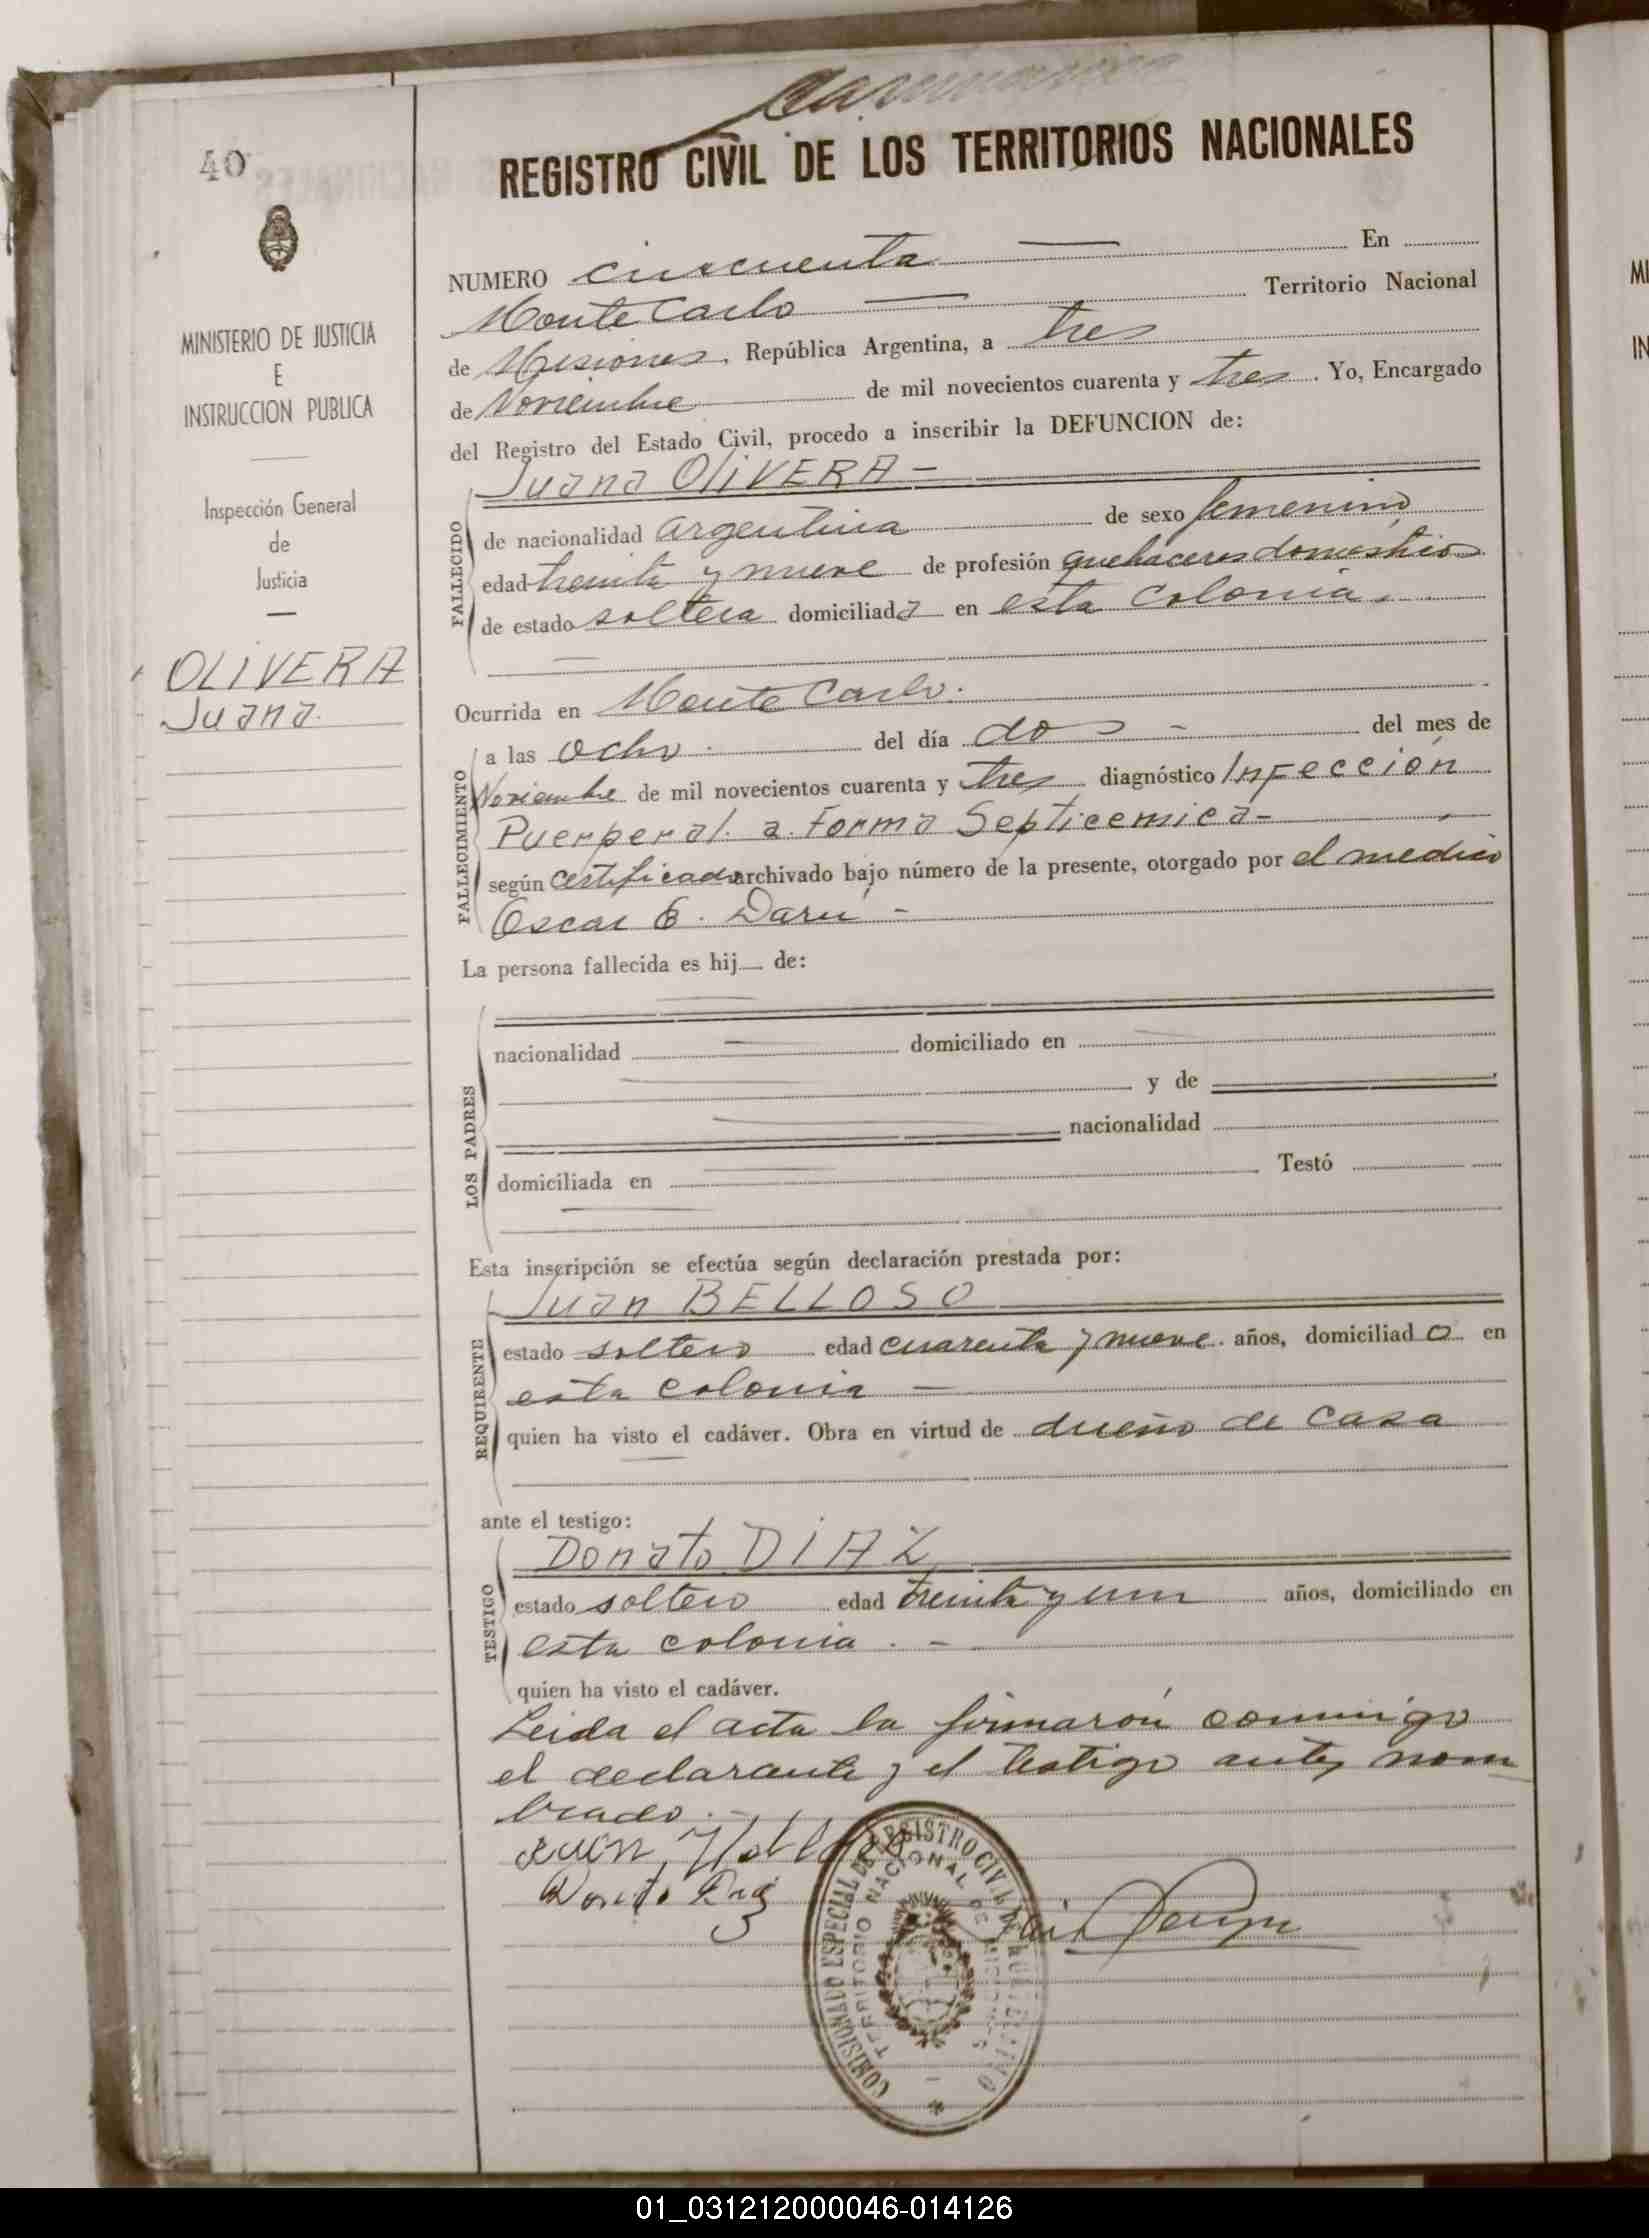 40
MINISTERIO DE JUSTICIA
E
INSTRUCCION PUBLICA
Inspección General
de
Justicia
OLIVERA
Juana.
REGISTRO CIVIL DE LOS TERRITORIOS NACIONALES
NUMERO cincuenta En
Monte Carlo Territorio Nacional
de Misiones, República Argentina, a tres
de Noviembre de mil novecientos cuarenta y tres. Yo, Encargado
del Registro del Estado Civil, procedo a inscribir la DEFUNCION de:
Juana OLIVERA -
FALLECIDO
de nacionalidad argentina de sexo femenino
edad treinta y nueve de profesión quehaceres domesticos
de estado soltera domiciliada en esta Colonia.
Ocurrida en Monte Carlo.
FALLECIMIENTO
a las ocho. del día dos - del mes de
Noviembre de mil novecientos cuarenta y tres diagnóstico Infección
Puerperal. a. Forma Septicemica-
según certificado archivado bajo número de la presente, otorgado por el medico
Oscar E. Daru -
La persona fallecida es hij de:
LOS PADRES
nacionalidad domiciliado en
y de
nacionalidad
domiciliada en Testó
Esta inscripción se efectúa según declaración prestada por:
Juan BELLOSO
REQUIRENTE
estado soltero edad cuarenta y nueve. años, domiciliado en
esta colonia -
quien ha visto el cadáver. Obra en virtud de dueño de casa
ante el testigo:
Donato DIAZ
TESTIGO
estado soltero edad treinta y un años, domiciliado en
esta colonia. -
quien ha visto el cadáver.
Leida el acta la firmarón conmigo
el declarante y el testigo antes nom
brado.-
Juan
Donato Diaz
COMISIONADO ESPECIAL DE REGISTRO CIVIL
TERRITORIO NACIONAL DE MISIONES
01_031212000046-014126